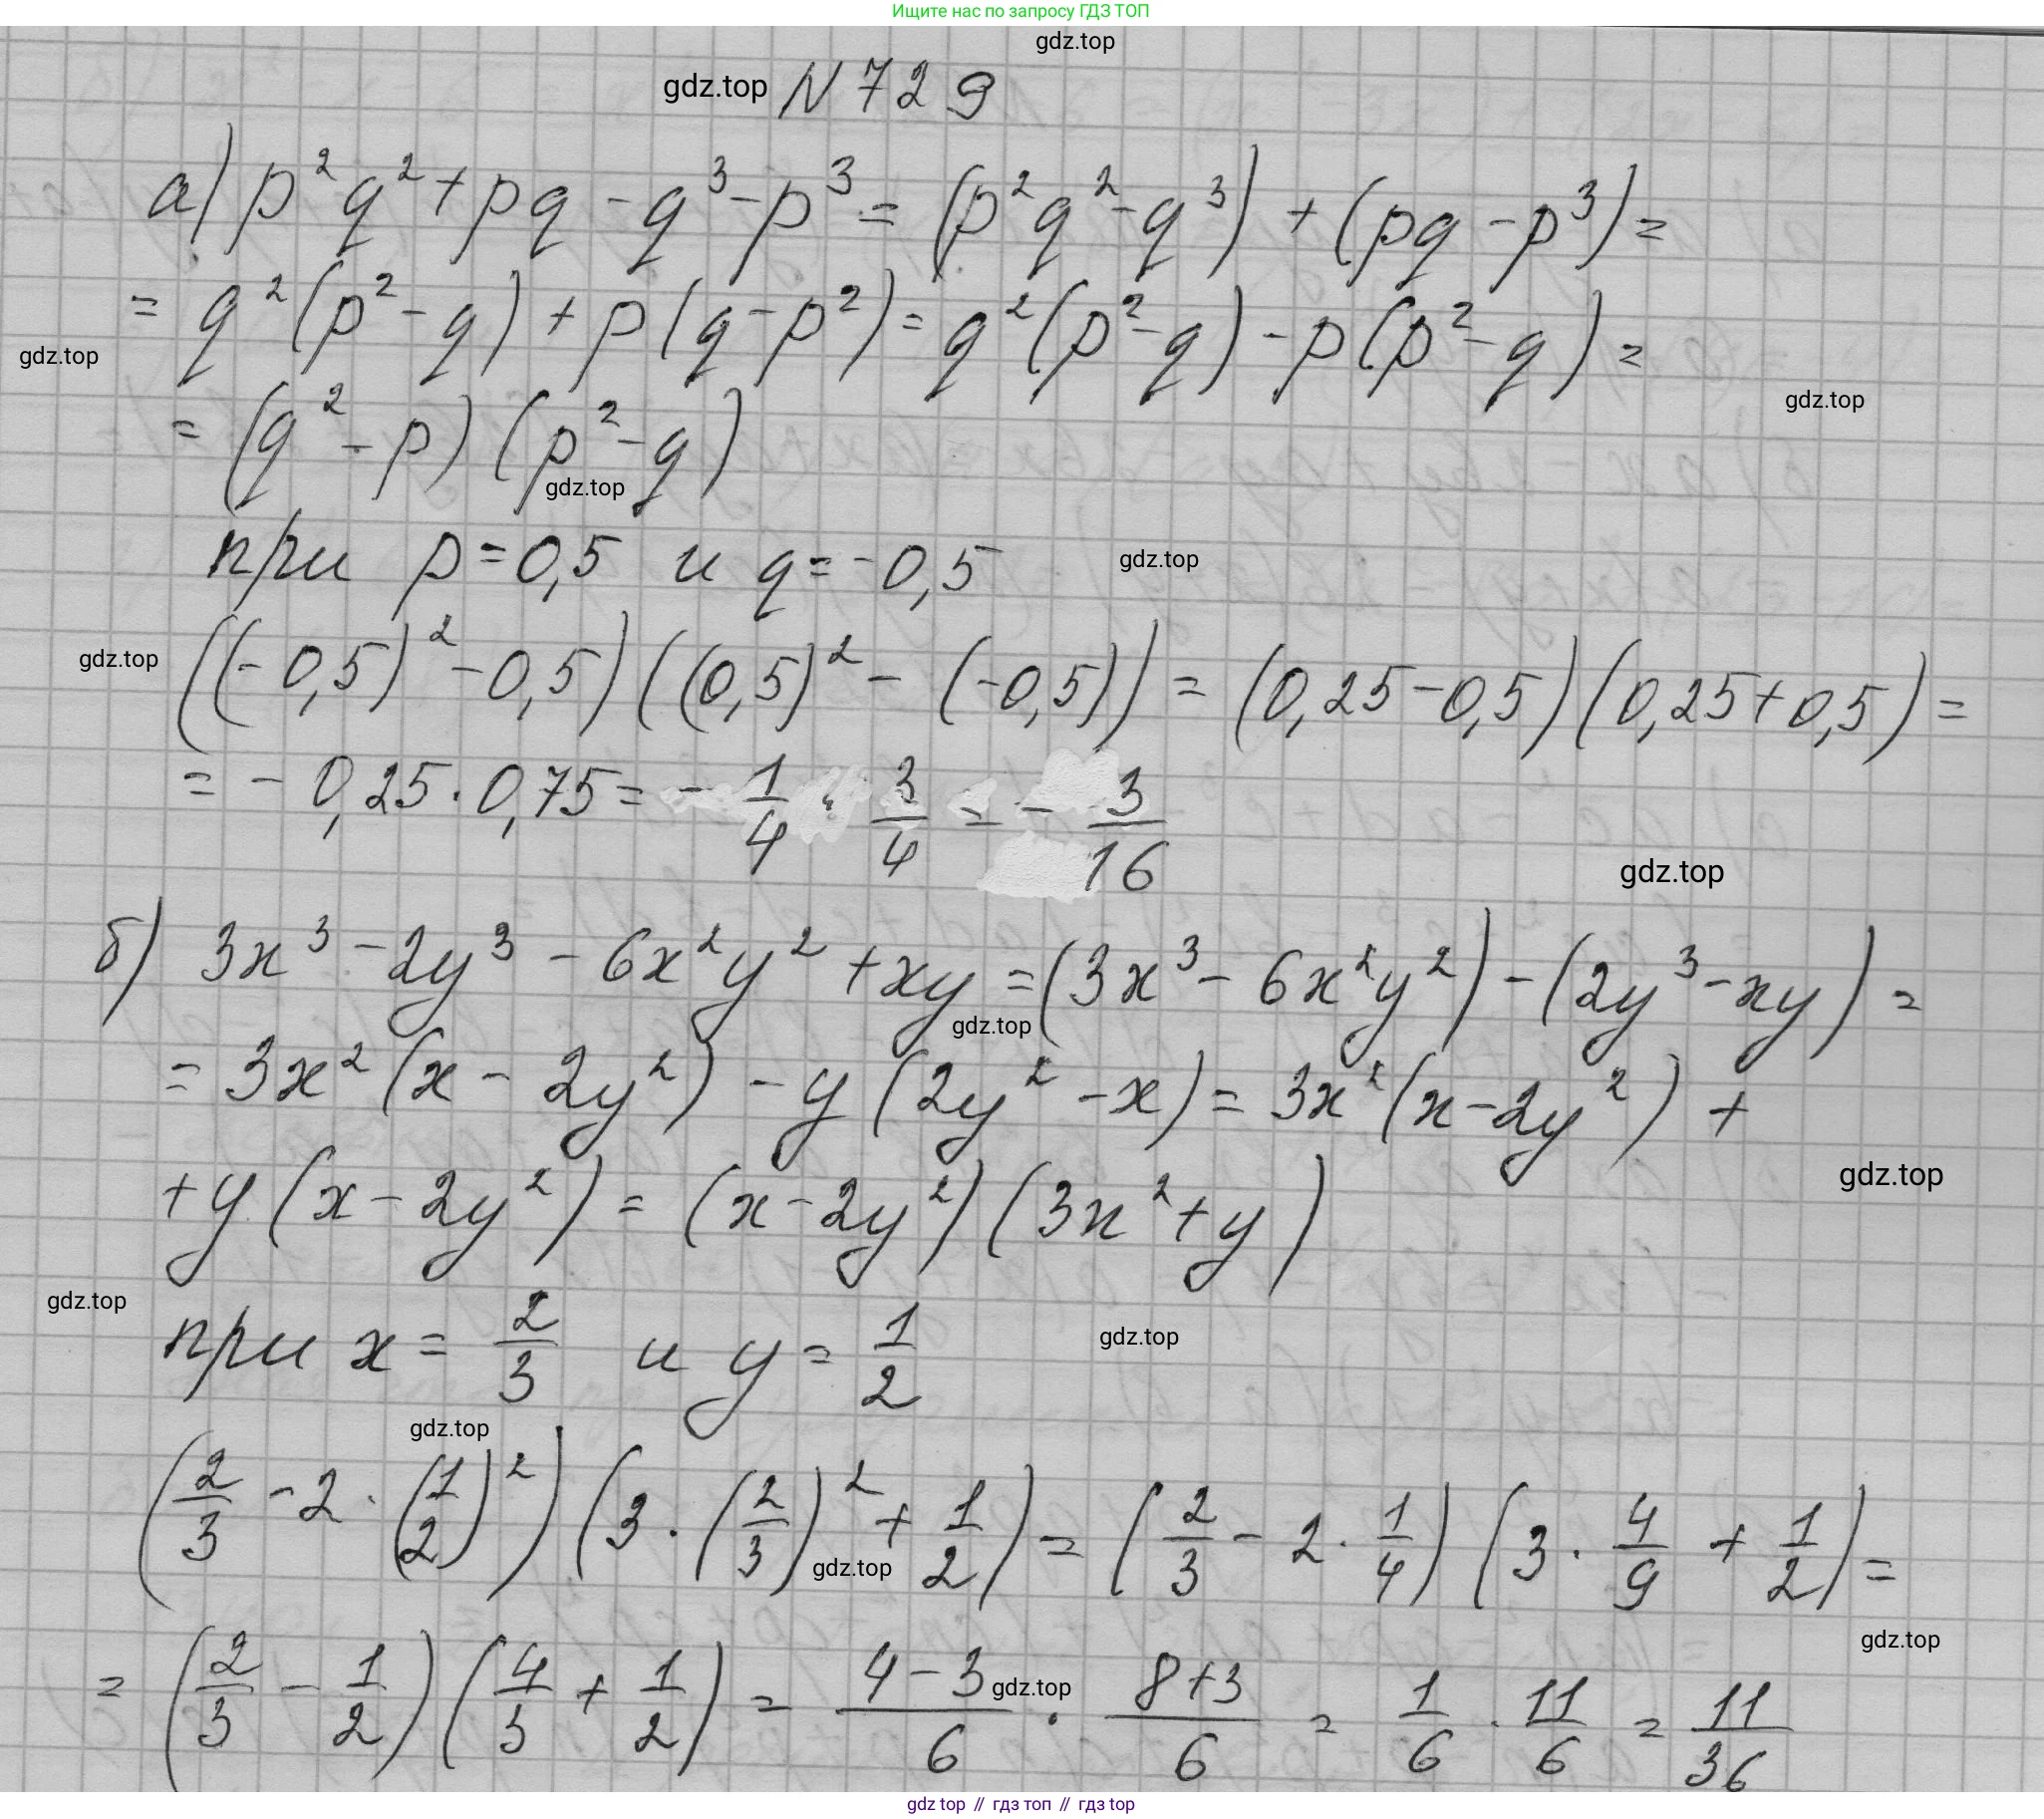 Ищите нас по запросу ГДЗ ТОП
gdz.top
gdz.top N 729
а) p²q² + pq - q³ - p³ = (p²q² - q³) + (pq - p³) =
= q²(p² - q) + p(q - p²) = q²(p² - q) - p(p² - q) =
gdz.top
gdz.top
= (q² - p)(p² - q)
gdz.top
при p = 0,5 и q = -0,5
gdz.top
gdz.top
((-0,5)² - 0,5)((0,5)² - (-0,5)) = (0,25 - 0,5)(0,25 + 0,5) =
= - 0,25 · 0,75 = - 1/4 · 3/4 = - 3/16
gdz.top
б) 3x³ - 2y³ - 6x²y² + xy = (3x³ - 6x²y²) - (2y³ - xy) =
gdz.top
= 3x²(x - 2y²) - y(2y² - x) = 3x²(x - 2y²) +
gdz.top
+ y(x - 2y²) = (x - 2y²)(3x² + y)
gdz.top
при x = 2/3 и y = 1/2
gdz.top
gdz.top
(2/3 - 2 · (1/2)²)(3 · (2/3)² + 1/2) = (2/3 - 2 · 1/4)(3 · 4/9 + 1/2) =
gdz.top
gdz.top
= (2/3 - 1/2)(4/3 + 1/2) = 4 - 3/6 · 8 + 3/6 = 1/6 · 11/6 = 11/36
gdz.top
gdz top // гдз топ // gdz top